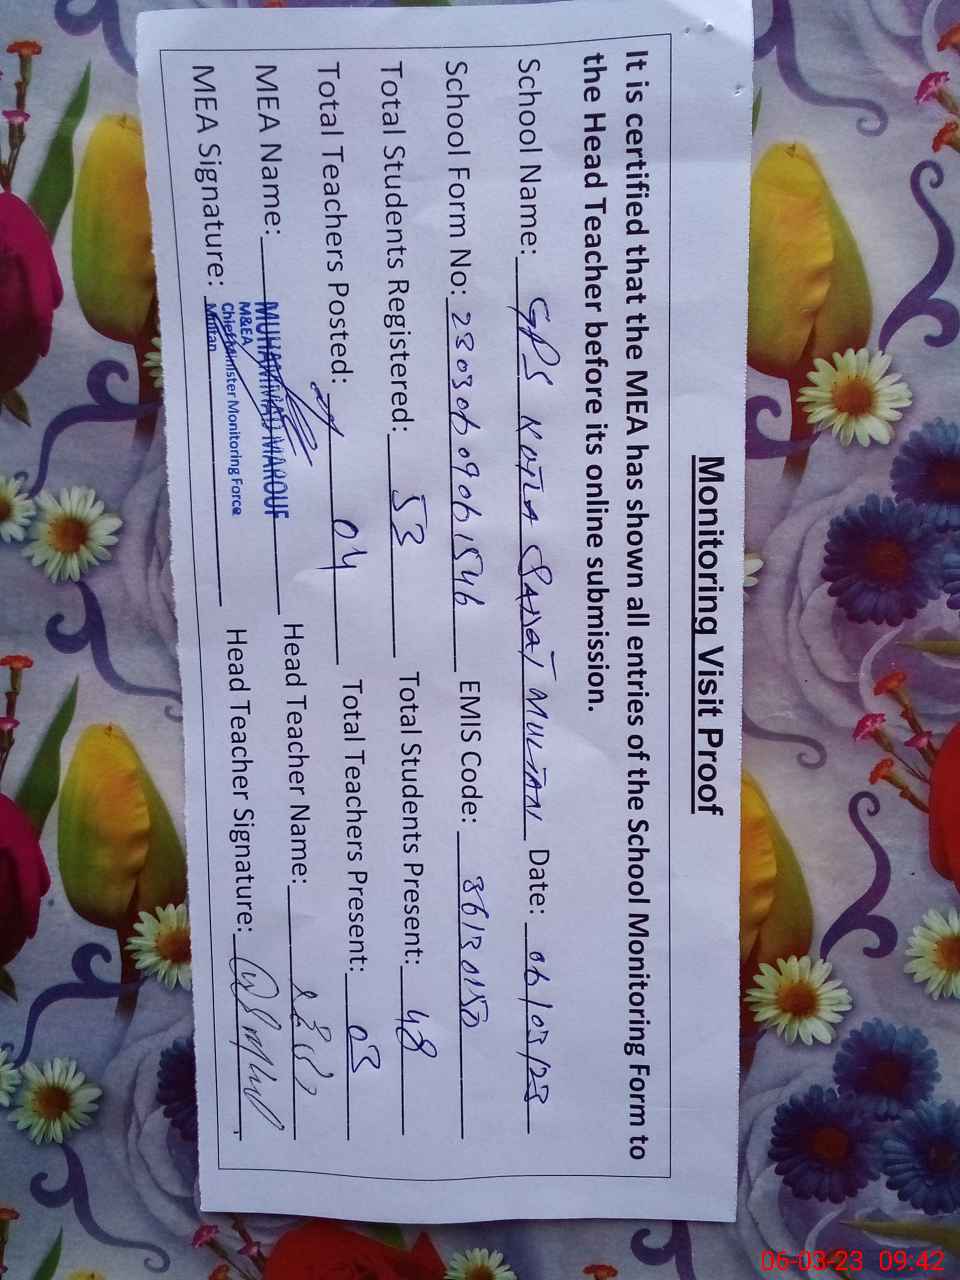 Monitoring Visit Proof
It is certified that the MEA has shown all entries of the School Monitoring Form to
the Head Teacher before its online submission.
School Name: GPS KOTLA MULTAN Date: 06/03/23
School Form No: 23030609061546 EMIS Code: 36130150
Total Students Registered: 53 Total Students Present: 48
Total Teachers Posted: 04 Total Teachers Present: 03
MEA Name: MUHAMMAD MAROUF Head Teacher Name:
M&EA
Chief Minister Monitoring Force
MEA Signature: Multan Head Teacher Signature:
06-03-23 09:42